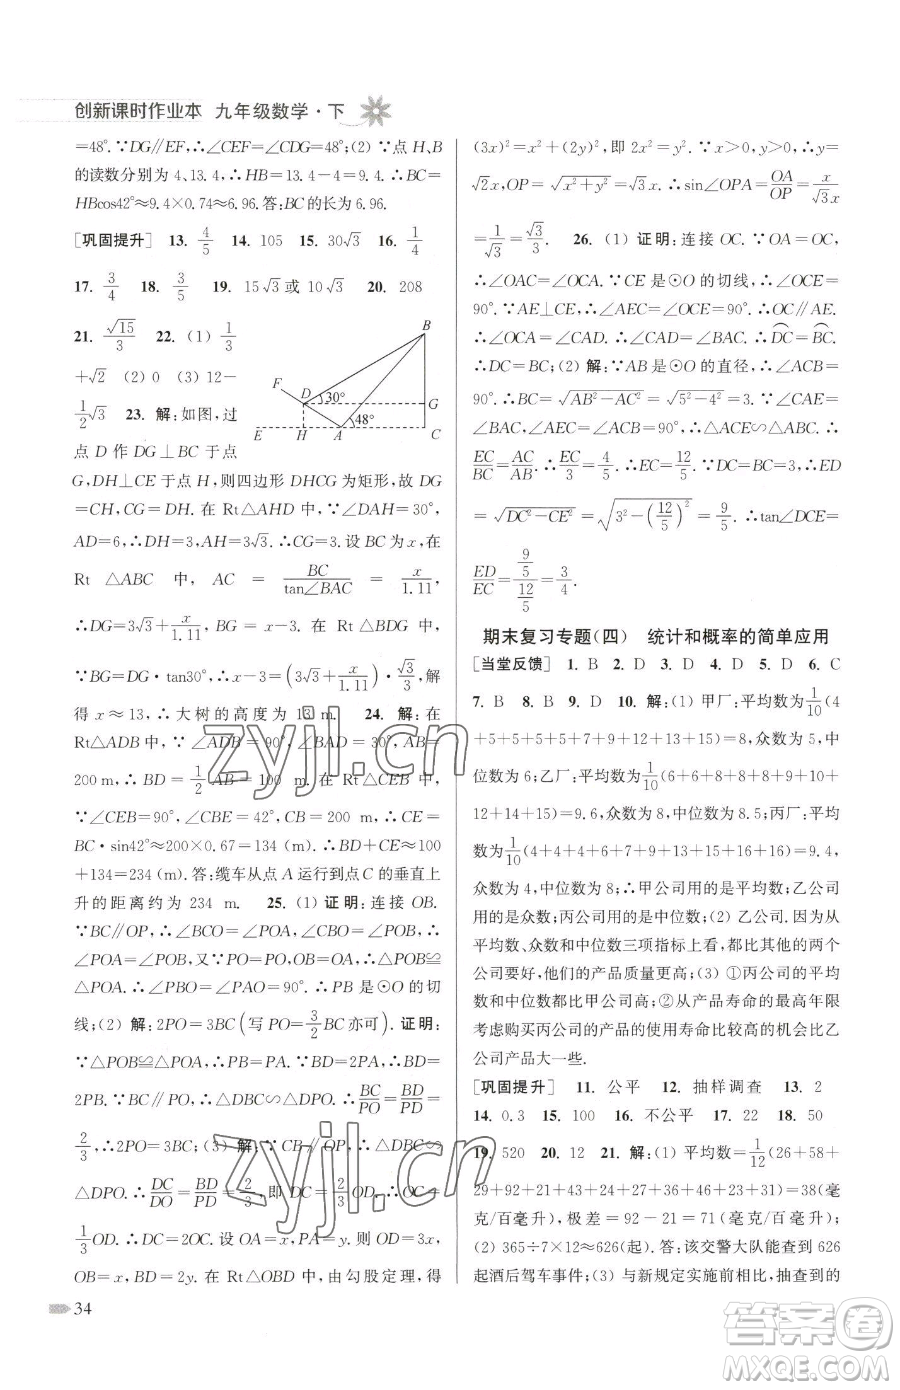 创新课时作业本 九年级数学·下
=48°.∵DG∥EF,∴∠CEF=∠CDG=48°;(2)∵点H、B
的读数分别为4、13.4,∴HB=13.4-4=9.4.∴BC=
HBcos42°≈9.4×0.74≈6.96.答:BC的长为6.96.
[巩固提升] 13. 4/5 14. 105 15. 30√3 16. 1/4
17. 3/4 18. 3/5 19. 15√3或10√3 20. 208
21. √15/3 22. (1) 1/3
+√2 (2) 0 (3) 12-
1/2√3 23. 解:如图,过
点D作DG⊥BC于点
F D 30° B G 48° E H A C
G,DH⊥CE于点H,则四边形DHCG为矩形,故DG
=CH,CG=DH.在Rt△AHD中,∵∠DAH=30°,
AD=6,∴DH=3,AH=3√3.∴CG=3.设BC为x,在
Rt△ABC中,AC=BC/tan∠BAC=x/1.11,
∴DG=3√3+x/1.11,BG=x-3.在Rt△BDG中,
∵BG=DG·tan30°,∴x-3=(3√3+x/1.11)·√3/3,解
得x≈13,∴大树的高度为13 m. 24. 解:在
Rt△ADB中,∵∠ADB=90°,∠BAD=30°,AB=
200 m,∴BD=1/2AB=100 m.在Rt△CEB中,
∵∠CEB=90°,∠CBE=42°,CB=200 m,∴CE=
BC·sin42°≈200×0.67=134(m).∴BD+CE≈100
+134=234(m).答:缆车从点A运行到点C的垂直上
升的距离约为234 m. 25. (1) 证明:连接OB.
∵BC∥OP,∴∠BCO=∠POA,∠CBO=∠POB.
∴∠POA=∠POB.又∵PO=PO,OB=OA,∴△POB≌
△POA.∴∠PBO=∠PAO=90°.∴PB是⊙O的切
线;(2) 解:2PO=3BC(写PO=3/2BC亦可).证明:
∵△POB≌△POA,∴PB=PA.∵BD=2PA,∴BD=
2PB.∵BC∥PO,∴△DBC∽△DPO.∴BC/PO=BD/PD=
2/3,∴2PO=3BC;(3) 解:∵CB∥OP,∴△DBC∽
△DPO.∴DC/DO=BD/PD=2/3,即DC=2/3OD.∴OC=
1/3OD.∴DC=2OC.设OA=x,PA=y.则OD=3x,
OB=x,BD=2y.在Rt△OBD中,由勾股定理,得
(3x)²=x²+(2y)²,即2x²=y².∵x>0,y>0,∴y=
√2x,OP=√(x²+y²)=√3x.∴sin∠OPA=OA/OP=x/√3x
=1/√3=√3/3. 26. (1) 证明:连接OC.∵OA=OC,
∴∠OAC=∠OCA.∵CE是⊙O的切线,∴∠OCE=
90°.∵AE⊥CE,∴∠AEC=∠OCE=90°.∴OC∥AE.
∴∠OCA=∠CAD.∴∠CAD=∠BAC.∴DC=BC.
∴DC=BC;(2) 解:∵AB是⊙O的直径,∴∠ACB=
90°.∴BC=√(AB²-AC²)=√(5²-4²)=3.∵∠CAE=
∠BAC,∠AEC=∠ACB=90°,∴△ACE∽△ABC.∴
EC/BC=AC/AB.∴EC/3=4/5.∴EC=12/5.∵DC=BC=3,∴ED
=√(DC²-CE²)=√(3²-(12/5)²)=9/5.∴tan∠DCE=
ED/EC=(9/5)/(12/5)=3/4.
期末复习专题(四) 统计和概率的简单应用
[当堂反馈] 1. B 2. D 3. D 4. D 5. D 6. C
7. B 8. B 9. D 10. 解:(1) 甲厂:平均数为1/10(4
+5+5+5+5+7+9+12+13+15)=8,众数为5,中
位数为6;乙厂:平均数为1/10(6+6+8+8+8+9+10+
12+14+15)=9.6,众数为8,中位数为8.5;丙厂:平均
数为1/10(4+4+4+6+7+9+13+15+16+16)=9.4,
众数为4,中位数为8;∴甲公司用的是平均数;乙公司
用的是众数;丙公司用的是中位数;(2) 乙公司.因为从
平均数、众数和中位数三项指标上看,都比其他的两个
公司要好,他们的产品质量更高;(3) ①丙公司的平均
数和中位数都比甲公司高;②从产品寿命的最高年限
考虑购买丙公司的产品的使用寿命比较高的机会比乙
公司产品大一些.
[巩固提升] 11. 公平 12. 抽样调查 13. 2
14. 0.3 15. 100 16. 不公平 17. 22 18. 50
19. 520 20. 12 21. 解:(1) 平均数=1/12(26+58+
29+92+21+43+24+27+36+46+23+31)=38(毫
克/百毫升),极差=92-21=71(毫克/百毫升);
(2) 365÷7×12≈626(起).答:该交警大队能查到626
起酒后驾车事件;(3) 与新规定实施前相比,抽查到的
34
zyjl.cn
zyjl.cn
答案圈
MXQE.COM